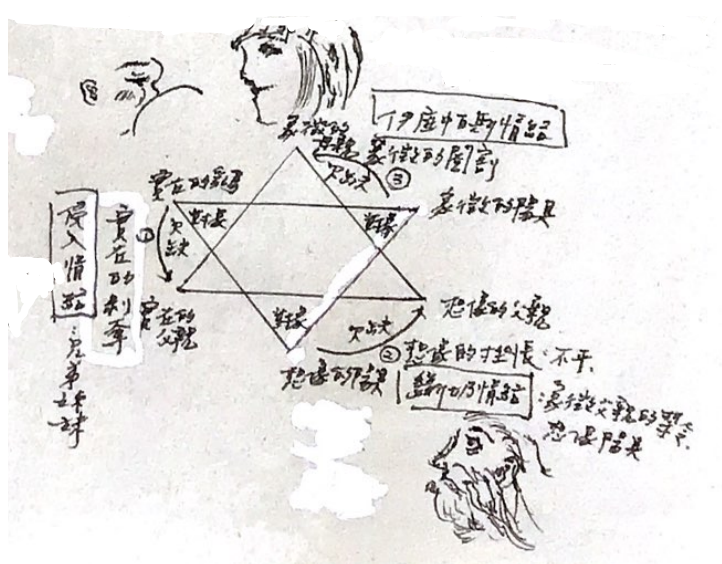 伊底帕斯情結
象徵的
母親
象徵的閹割
欠缺
③
實在的乳房
象徵的陽具
對象
對象
①
欠缺
侵入情結
兄弟姊妹
實在的剝奪
實在的
父親
對象
欠缺
想像的父親
② 想像的 不平
想像的陽具
情結
象徵父親的禁令
想像陽具